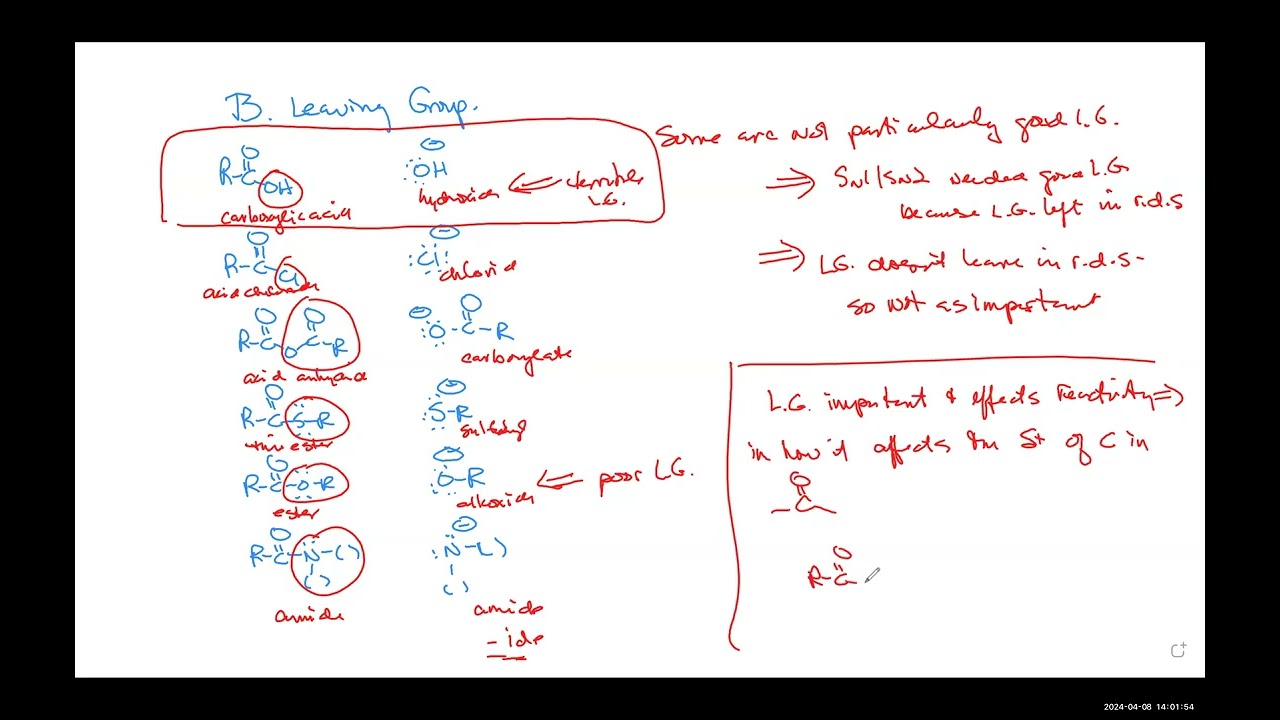 B. Leaving Group.
O
R-C
OH
carboxylic acid
⊖
:OH
hydroxide ⇐ terrible
L.G.
O
R-C
Cl
acid chloride
⊖
:Cl:
chloride
O O
R-C O C-R
acid anhydride
⊖ O
:O-C-R
carboxylate
O
R-C-S-R
thioester
⊖
:S-R
O
R-C-O-R
ester
⊖
:O-R
alkoxide ⇐ poor L.G.
O
R-C-N-( )
( )
amide
⊖
:N-( )
( )
amide
-ide
Some are not particularly good L.G.
⇒ SN1/SN2 needed good L.G
because L.G. left in r.d.s
⇒ LG. doesn't leave in r.d.s-
so not as important
L.G. important & effects reactivity ⇒
in how it affects the δ+ of C in
O
C
O
R-C
2024-04-08 14:01:54